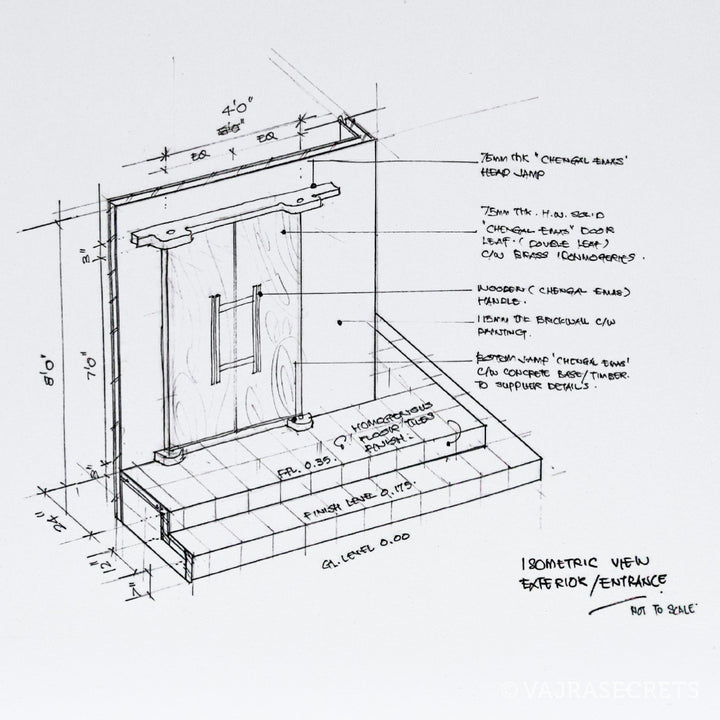 4'0"
EQ EQ
75mm thk "CHENGAL EMAS"
HEAD JAMP
75mm THK. H.W. SOLID
"CHENGAL EMAS" DOOR
LEAF. (DOUBLE LEAF)
C/W BRASS IRONMOGERIES.
WOODEN (CHENGAL EMAS)
HANDLE.
115mm THK BRICKWALL C/W
PAINTING.
BOTTOM JAMP 'CHENGAL EMAS'
C/W CONCRETE BASE/TIMBER.
TO SUPPLIER DETAILS.
8'0"
7'0"
HOMOGENIOUS
FLOOR TILES
FINISH.
FFL. 0.35.
FINISH LEVEL 0.175.
GL. LEVEL 0.00
24"
12"
ISOMETRIC VIEW
EXTERIOR/ENTRANCE
NOT TO SCALE
© VAJRASECRETS